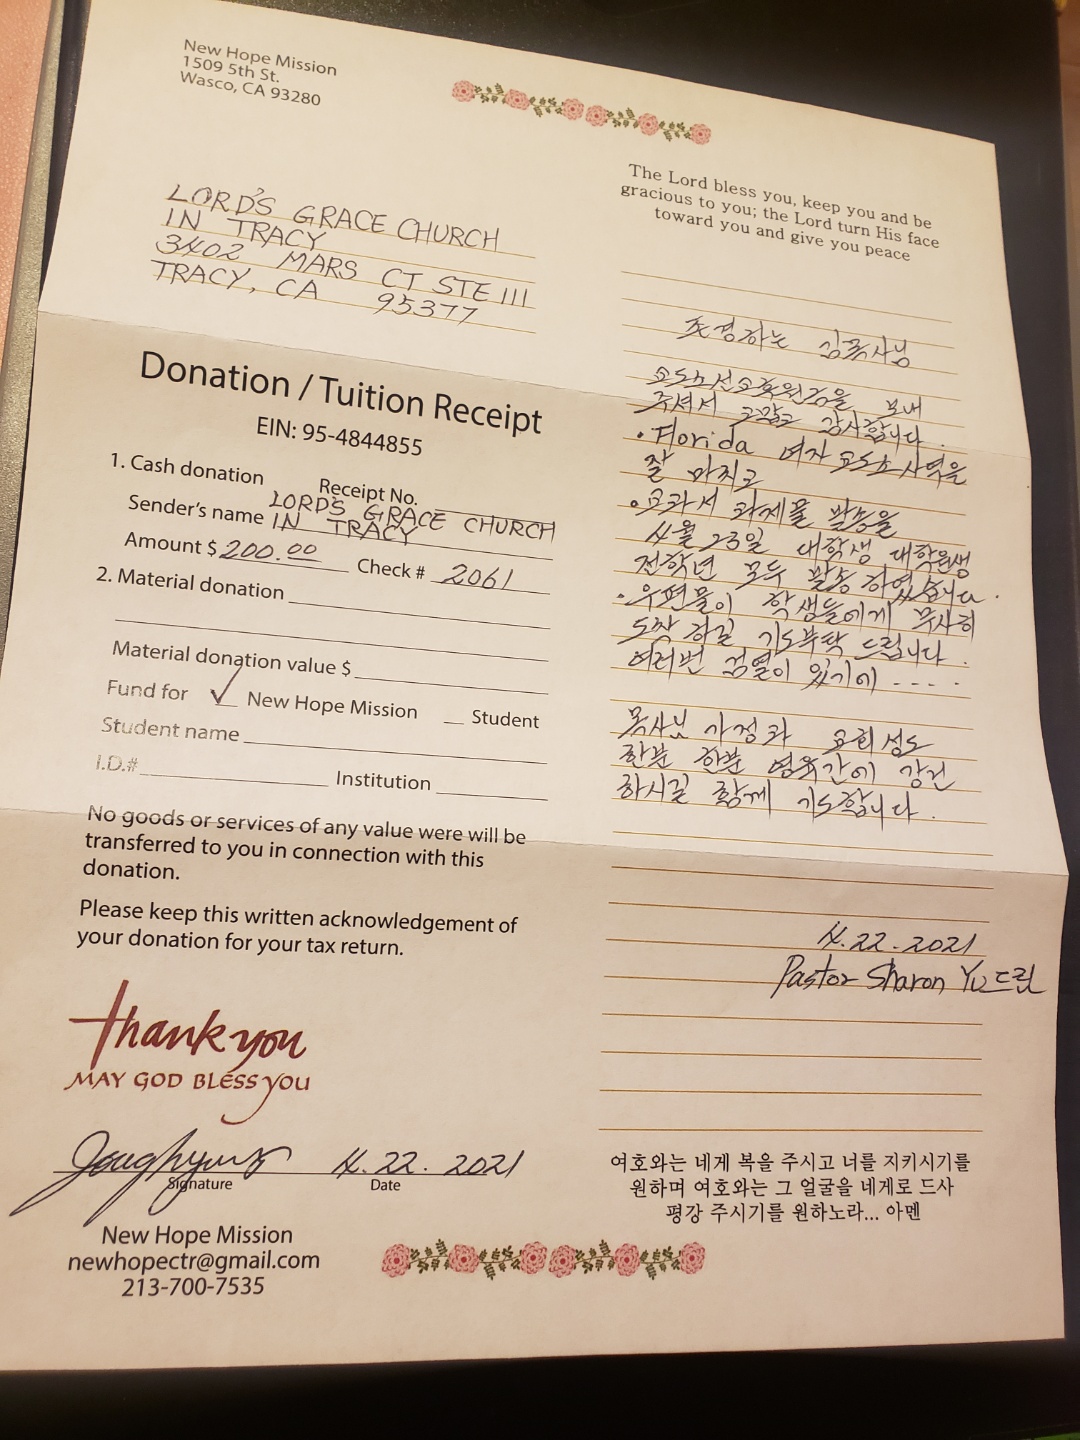 New Hope Mission
1509 5th St.
Wasco, CA 93280
LORD'S GRACE CHURCH
IN TRACY
3402 MARS CT STE 111
TRACY, CA 95377
Donation / Tuition Receipt
EIN: 95-4844855
1. Cash donation Receipt No.
Sender's name LORD'S GRACE CHURCH
IN TRACY
Amount $ 200.00 Check # 2061
2. Material donation
Material donation value $
Fund for ✓ New Hope Mission Student
Student name
I.D.# Institution
No goods or services of any value were will be
transferred to you in connection with this
donation.
Please keep this written acknowledgement of
your donation for your tax return.
Thank you
MAY GOD BLESS YOU
4.22.2021
Signature Date
New Hope Mission
newhopectr@gmail.com
213-700-7535
The Lord bless you, keep you and be
gracious to you; the Lord turn His face
toward you and give you peace
존경하는 김목사님
교도소선교후원금을 보내
주셔서 고맙고 감사합니다.
• Florida 여자 교도소 사역을
잘 마치고
• 교과서 과제물 발송을
4월 23일 대학생 대학원생
전학년 모두 발송 하였습니다.
• 우편물이 학생들에게 무사히
도착 하길 기도부탁 드립니다.
여러번 검열이 있기에 ----
목사님 가정과 교회 성도
한분 한분 영육간에 강건
하시길 함께 기도합니다.
4.22.2021
Pastor Sharon Yu 드림
여호와는 네게 복을 주시고 너를 지키시기를
원하며 여호와는 그 얼굴을 네게로 드사
평강 주시기를 원하노라... 아멘